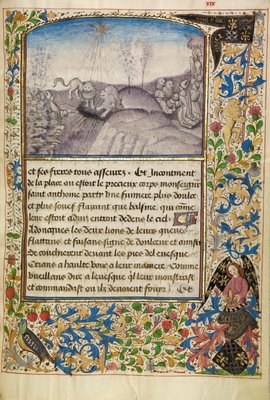 et ses freres tous asseurez. Et Incontinent
de la place ou estoit le precieux corps monseigneur
saint anthoine party une fumiere plus doulce
et plus souef flairant que basme qui comme
leur estoit aduis entoit dedens le ciel
Adoncques les deux lions de leurs queues
flattans et faisans signe de douleur et
se coucherent deuant les piez del euesque
Crians a haulte voix a leur maniere Comme
vueillans dire a leuesque quil leur monstrast
et commandast ou ilz deuoient fouyr